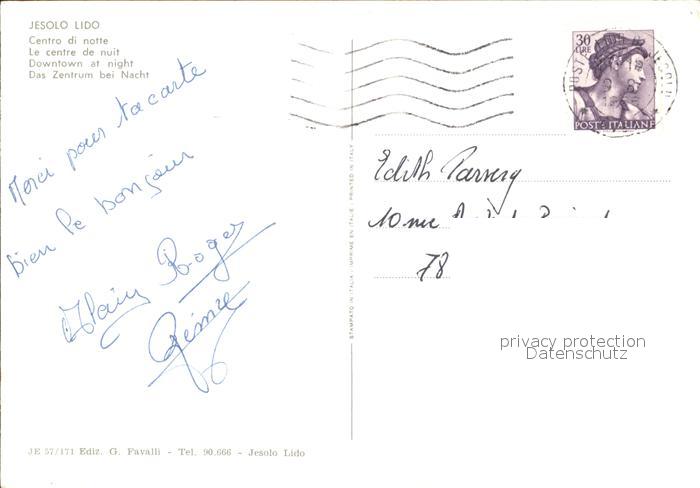 JESOLO LIDO
Centro di notte
Le centre de nuit
Downtown at night
Das Zentrum bei Nacht
Merci pour ta carte
bien le bonjour
Alain Roger
30
LIRE
POSTE ITALIANE
Edith
10 rue
78
STAMPATO IN ITALIA - IMPRIMÉ EN ITALIE - PRINTED IN ITALY
privacy protection
Datenschutz
JE 57/171 Ediz. G. Favalli - Tel. 90.666 - Jesolo Lido